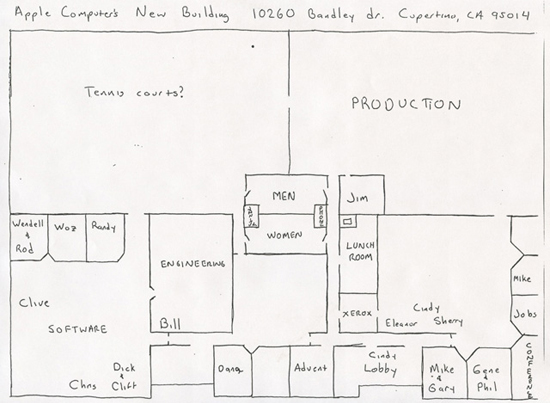 Apple Computer's New Building 10260 Bandley dr. Cupertino, CA 95014
Tennis courts?
PRODUCTION
MEN
Jim
Wendell
&
Rod
Woz
Randy
WOMEN
LUNCH
ROOM
ENGINEERING
Mike
Clive
XEROX
Cindy
Eleanor Sherry
Jobs
SOFTWARE
Bill
Dick
&
Cliff
Chris
Dana
Advent
Cindy
Lobby
Mike
&
Gary
Gene
&
Phil